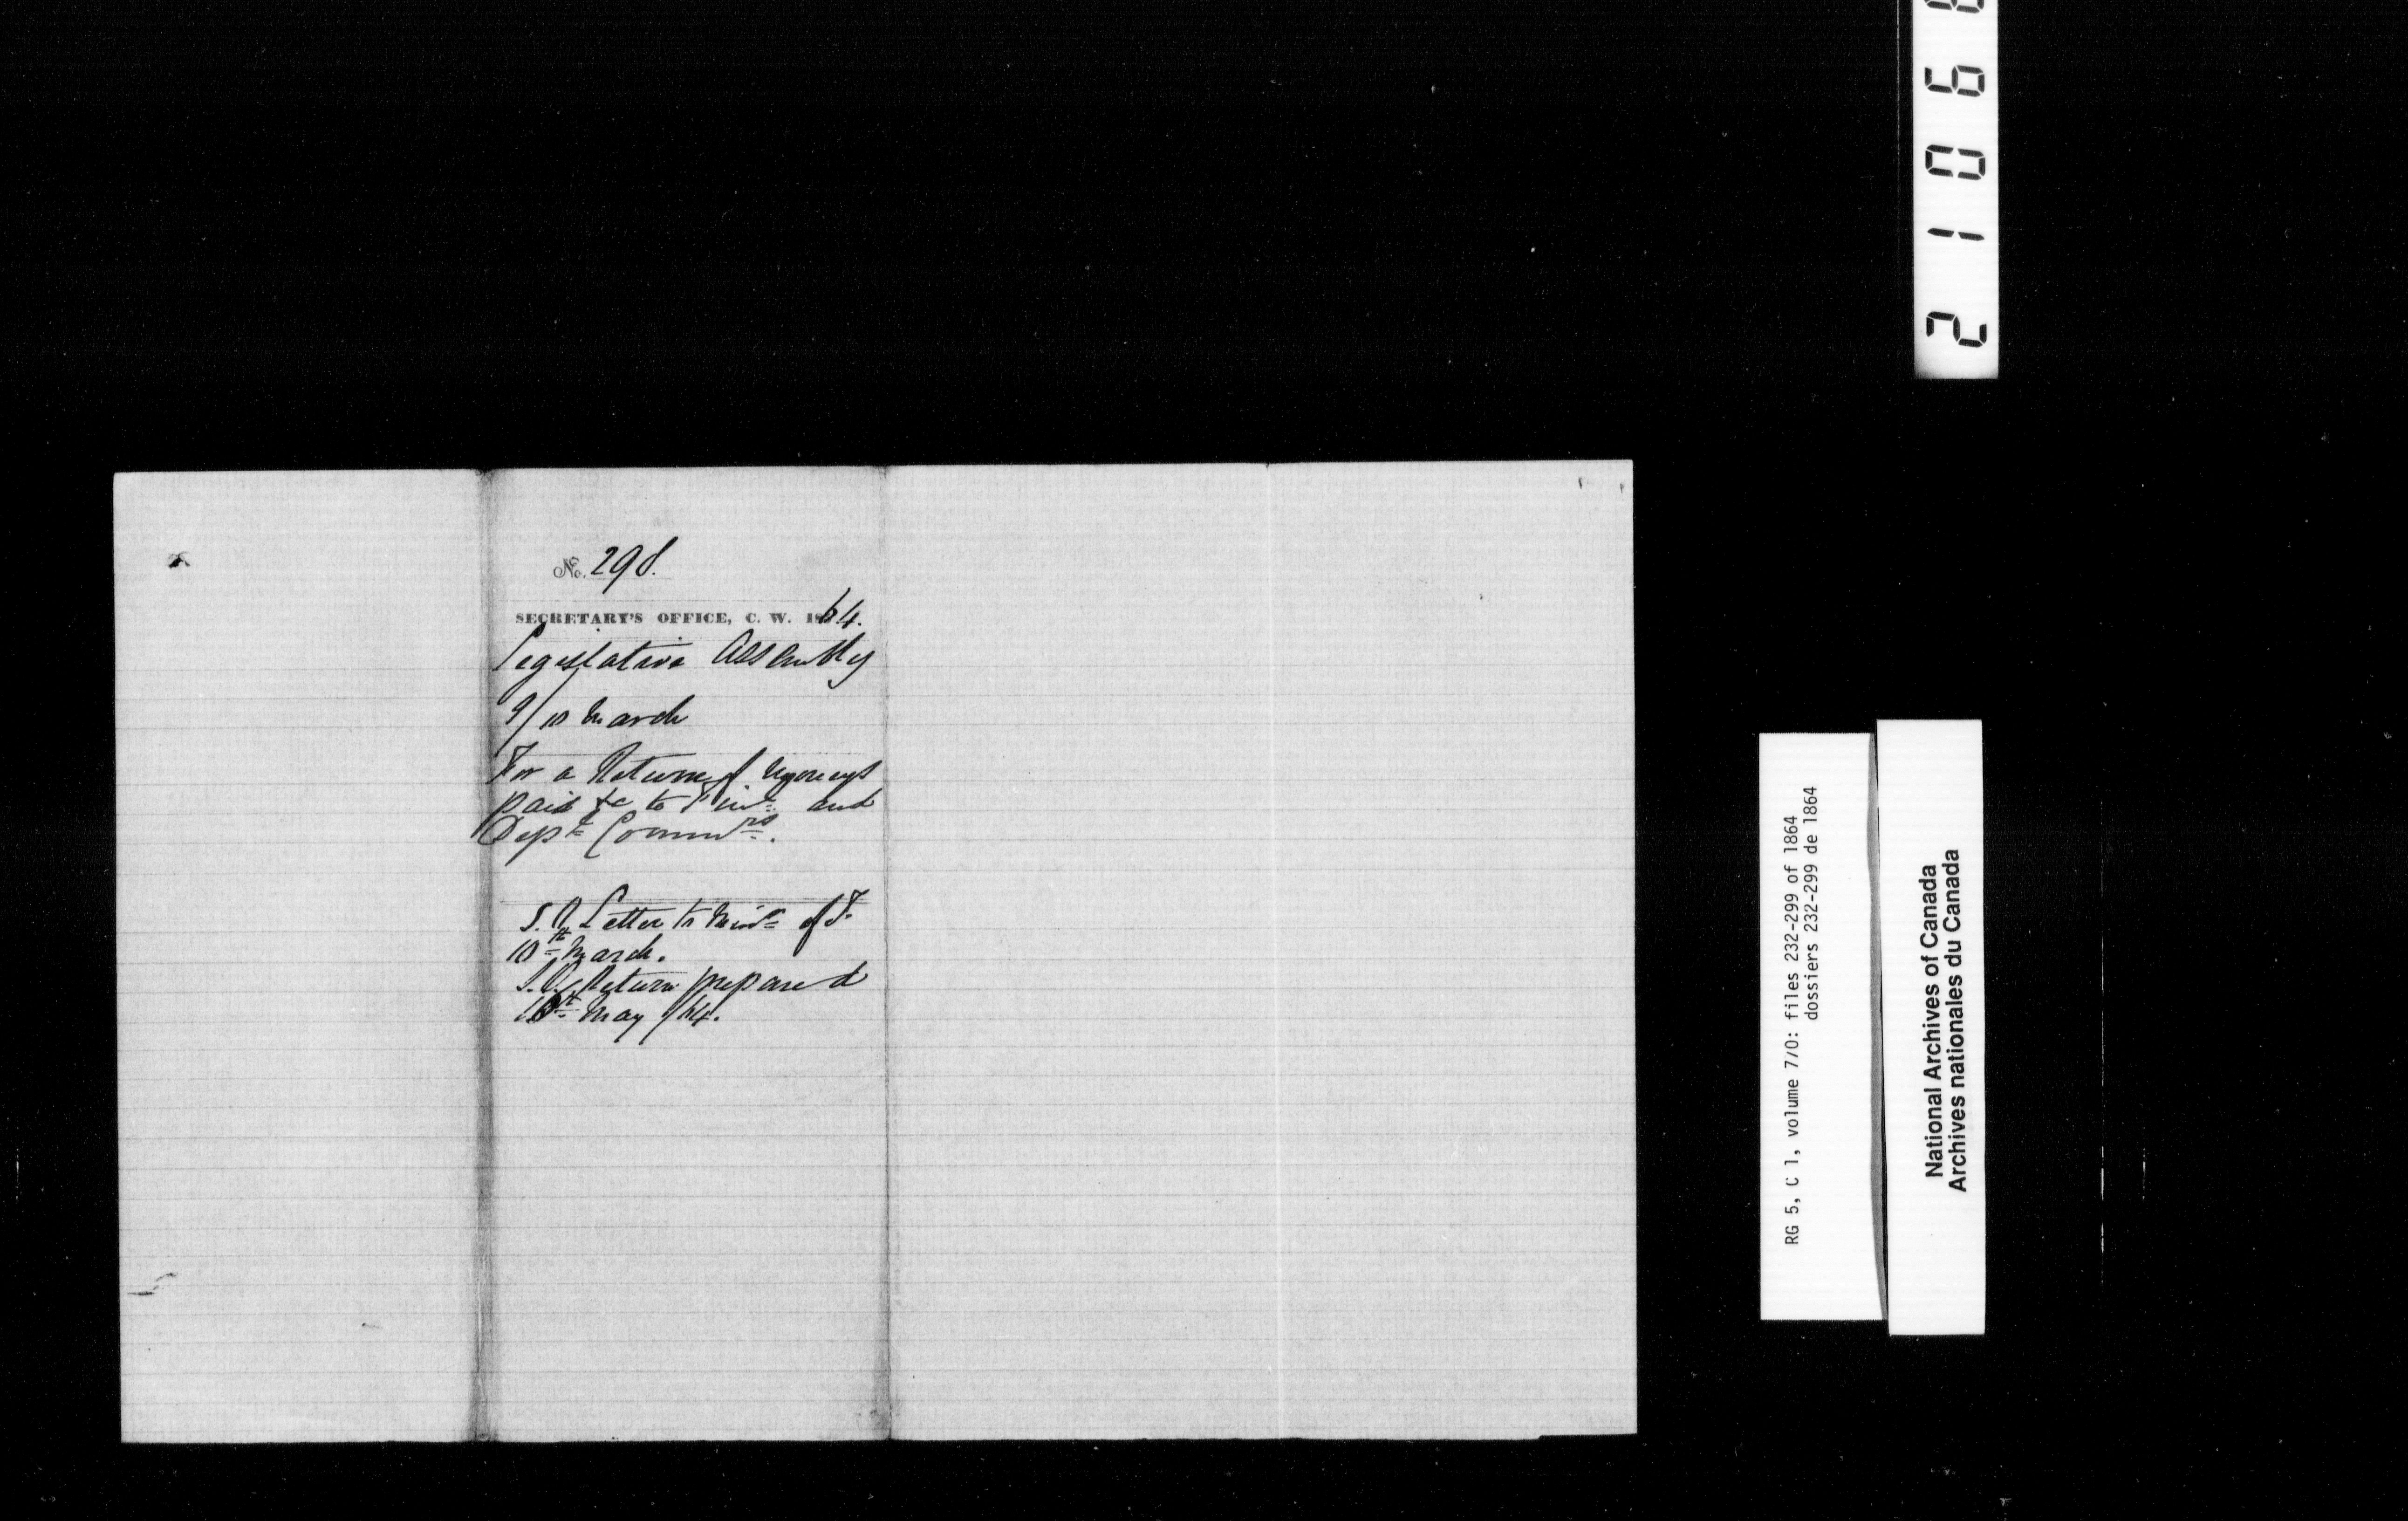 No. 298.
SECRETARY'S OFFICE, C. W. 1864.
Legislative Assembly
9/10 March
For a Return of Moneys
paid &c to Fin: and
Depl Commrs.
S. O. Letter to Minr of F.
10th March.
S. O. Return prepared
10th May /64.
2 1 0 6
RG 5, C 1, volume 770: files 232-299 of 1864
dossiers 232-299 de 1864
National Archives of Canada
Archives nationales du Canada